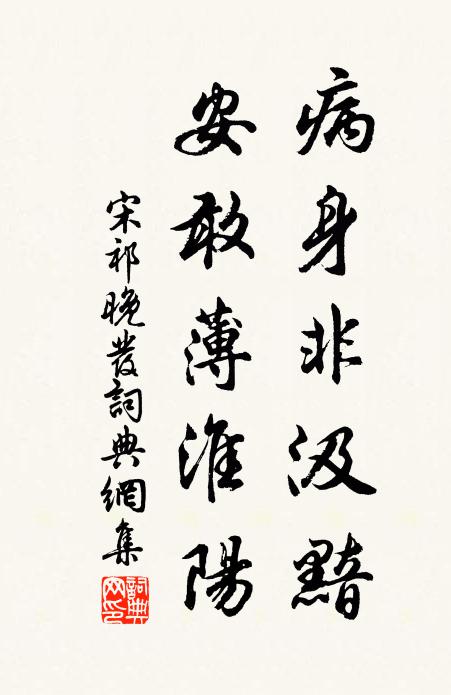 病身非汲黯
安敢薄淮陽
宋祁晚發詞典網集
詞典網印